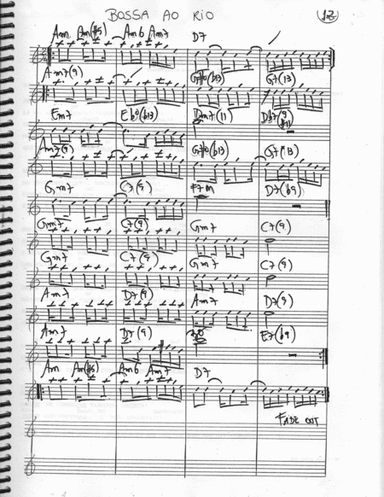 BOSSA AO RIO
Am Am(#5) Am6 Am7 D7
Am7(9) G7(13)
Em7 Eb°(b13) Dm7(11)
Am7(9)
Gm7 C7(9) F7M D7(b9)
Gm7 C7(9) Gm7 C7(9)
Gm7 C7(9) Gm7 C7(9)
Am7 D7(9) Am7 D7(9)
Am7 D7(9) E7(b9)
Am Am(#5) Am6 Am7 D7
FADE OUT